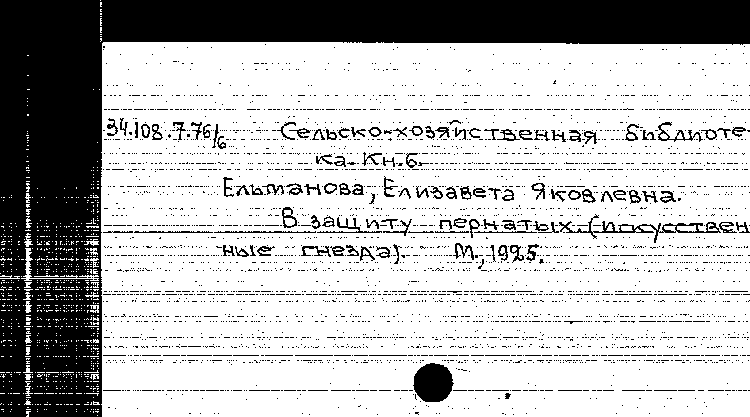 34.108.7.76/6 Сельско-хозяйственная библиоте-
ка. Кн.6.
Ельманова, Елизавета Яковлевна.
В защиту пернатых. (искусствен
ные гнезда). М., 1925.